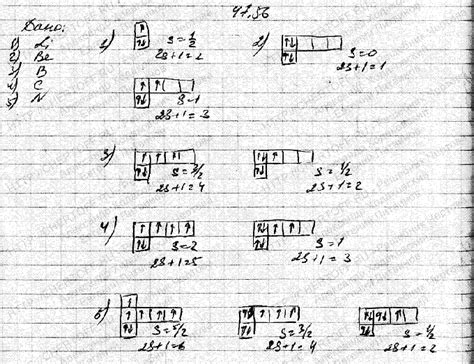 47.56
Дано:
1) Li
2) Be
3) B
4) C
5) N
1) ↑ ↑↓ S=1/2
2S+1=2
2) ↑↓ ↑↓ S=0
2S+1=1
↑ ↑ ↑↓ S=1
2S+1=3
3) ↑ ↑ ↑ ↑↓ S=3/2
2S+1=4
↑↓ ↑ ↑↓ S=1/2
2S+1=2
4) ↑ ↑ ↑ ↑ ↑↓ S=2
2S+1=5
↑↓ ↑ ↑ ↑↓ S=1
2S+1=3
5) ↑ ↑ ↑ ↑ ↑ ↑↓ S=5/2
2S+1=6
↑↓ ↑ ↑ ↑ ↑↓ S=3/2
2S+1=4
↑↓ ↑↓ ↑ ↑↓ S=1/2
2S+1=2